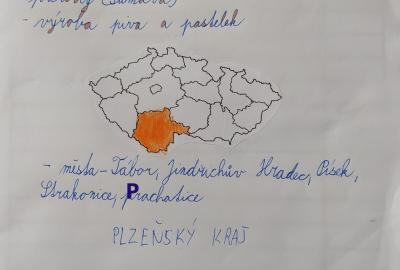 (Šumava)
- výroba piva a pastelek
- města - Tábor, Jindřichův Hradec, Písek,
Strakonice, Prachatice
PLZEŇSKÝ KRAJ